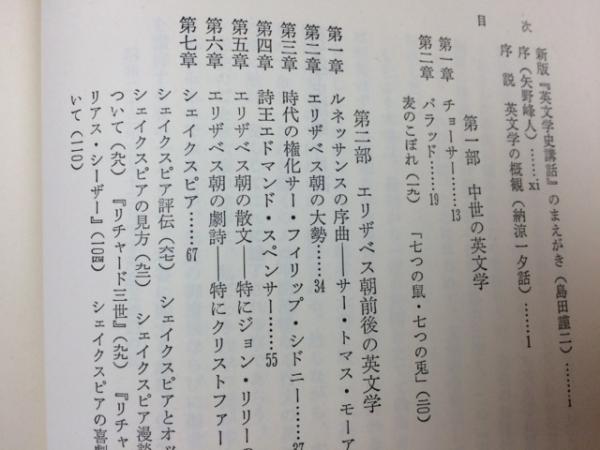 目次
新版『英文学史講話』のまえがき(島田謹二)……i
序(矢野峰人)……xi
序説 英文学の概観(納涼一夕話)……1
第一部 中世の英文学
第一章 チョーサー……13
第二章 バラッド……19
麦のこぼれ(一九) 「七つの鼠・七つの兎」(二〇)
第二部 エリザベス朝前後の英文学
第一章 ルネッサンスの序曲——サー・トマス・モーア
第二章 エリザベス朝の大勢……34
第三章 時代の権化サー・フィリップ・シドニー……37
第四章 詩王エドマンド・スペンサー……55
第五章 エリザベス朝の散文——特にジョン・リリーの
第六章 エリザベス朝の劇詩——特にクリストファー
第七章 シェイクスピア……67
シェイクスピア評伝(六七) シェイクスピアとオッ
シェイクスピアの見方(九二) シェイクスピア漫談
ついて(九八) 『リチャード三世』(九九) 『リチャ
リアス・シーザー』(一〇四) シェイクスピアの喜劇
いて(一一〇)